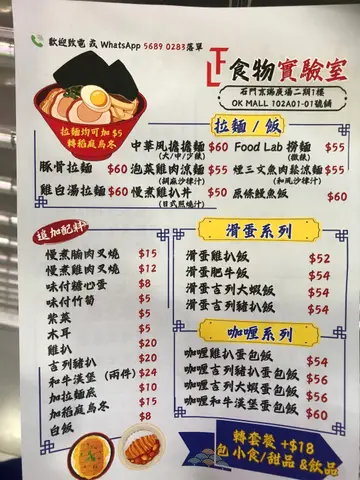 歡迎致電 或 WhatsApp 5689 0283落單
食物實驗室
石門京瑞廣場二期1樓
OK MALL 102A01-01號舖
拉麵均可加 $5
轉稻庭烏冬
拉麵/飯
豚骨拉麵 $60
雞白湯拉麵 $60
中華風擔擔麵 $60
(大/中/少辣)
泡菜雞肉涼麵 $55
(胡麻沙律汁)
慢煮雞扒丼 $50
(日式照燒汁)
Food Lab 撈麵 $55
(微辣)
煙三文魚肉鬆涼麵 $55
(和風沙律汁)
原條鰻魚飯 $60
追加配料
慢煮腩肉叉燒 $15
慢煮雞肉叉燒 $12
味付糖心蛋 $8
味付竹筍 $5
紫菜 $5
木耳 $5
雞扒 $20
吉列豬扒 $20
和牛漢堡 (兩件) $24
加拉麵底 $10
加稻庭烏冬 $15
白飯 $8
滑蛋系列
滑蛋雞扒飯 $52
滑蛋肥牛飯 $54
滑蛋吉列大蝦飯 $54
滑蛋吉列豬扒飯 $54
咖喱系列
咖喱雞扒蛋包飯 $54
咖喱吉列豬扒蛋包飯 $56
咖喱吉列大蝦蛋包飯 $56
咖喱和牛漢堡蛋包飯 $60
轉套餐 +$18
包 小食/甜品 &飲品